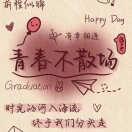 前程似锦
Happy Day
有幸相遇
青春不散场
Graduation
时光的河入海流
终于我们分头走